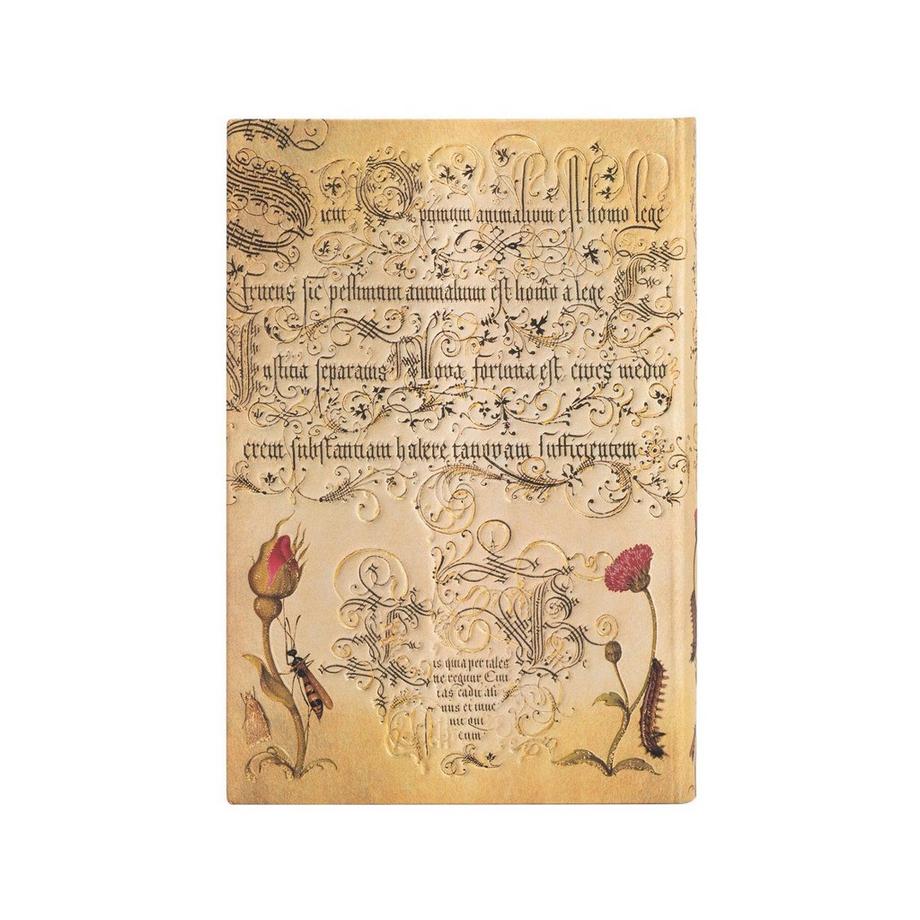 Sicut Optimum animalium est homo lege
fruens sic pessimum animalium est homo a lege Et
Iustitia separatus Nova fortuna est cives medio
crem substantiam habere tanquam sufficientem
Eis quia per tales Be
ne regitur Civi
tas